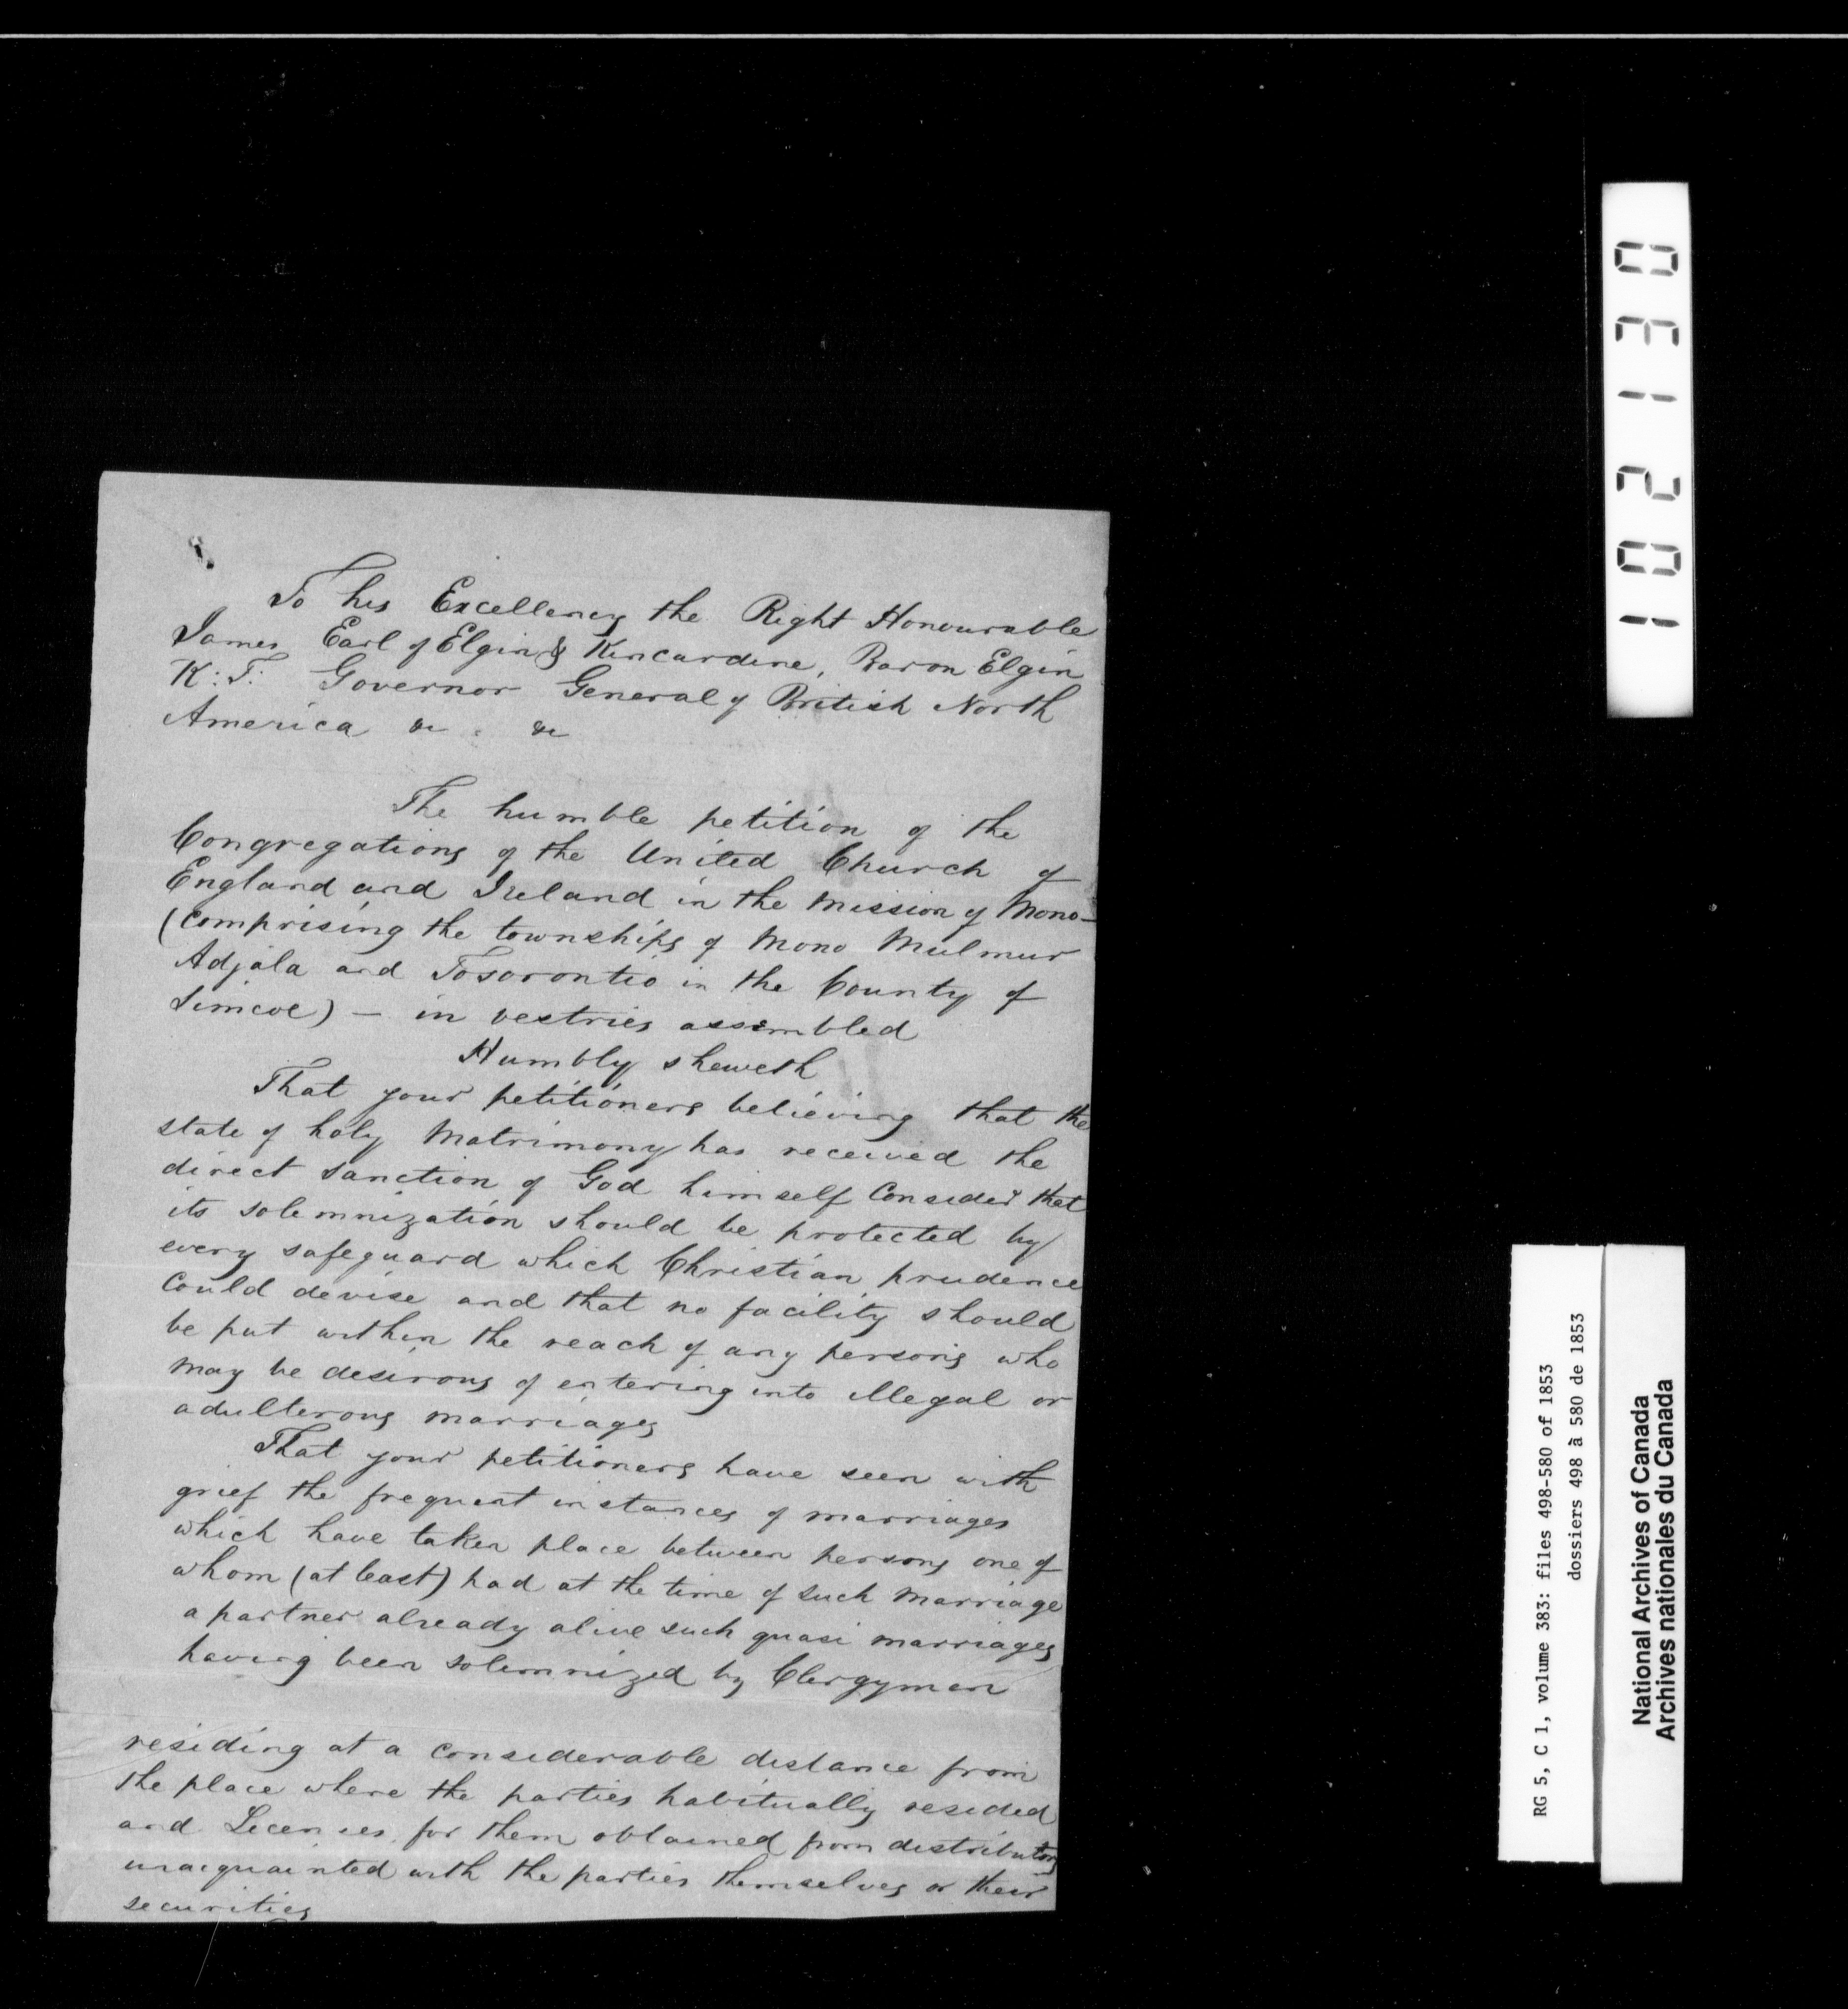 To his Excellency the Right Honourable
James Earl of Elgin & Kincardine, Baron Elgin
K: T: Governor General of British North
America &c . &c
The humble petition of the
Congregations of the United Church of
England and Ireland in the Mission of Mono—
(comprising the townships of Mono Mulmur
Adjala and Tosorontio in the County of
Simcoe) — in vestries assembled
Humbly sheweth
That your petitioners believing that the
state of holy Matrimony has received the
direct sanction of God himself Consider that
its solemnization should be protected by
every safeguard which Christian prudence
Could devise and that no facility should
be put within the reach of any persons who
may be desirous of entering into illegal or
adulterous marriages
That your petitioners have seen with
grief the frequent instances of marriages
which have taken place between persons one of
whom (at least) had at the time of such marriage
a partner already alive such quasi marriages
having been solemnized by Clergymen
residing at a considerable distance from
the place where the parties habitually resided
and Licenses for them obtained from distributors
unacquainted with the parties themselves or their
securities
10213 0
RG 5, C 1, volume 383: files 498-580 of 1853
dossiers 498 à 580 de 1853
National Archives of Canada
Archives nationales du Canada